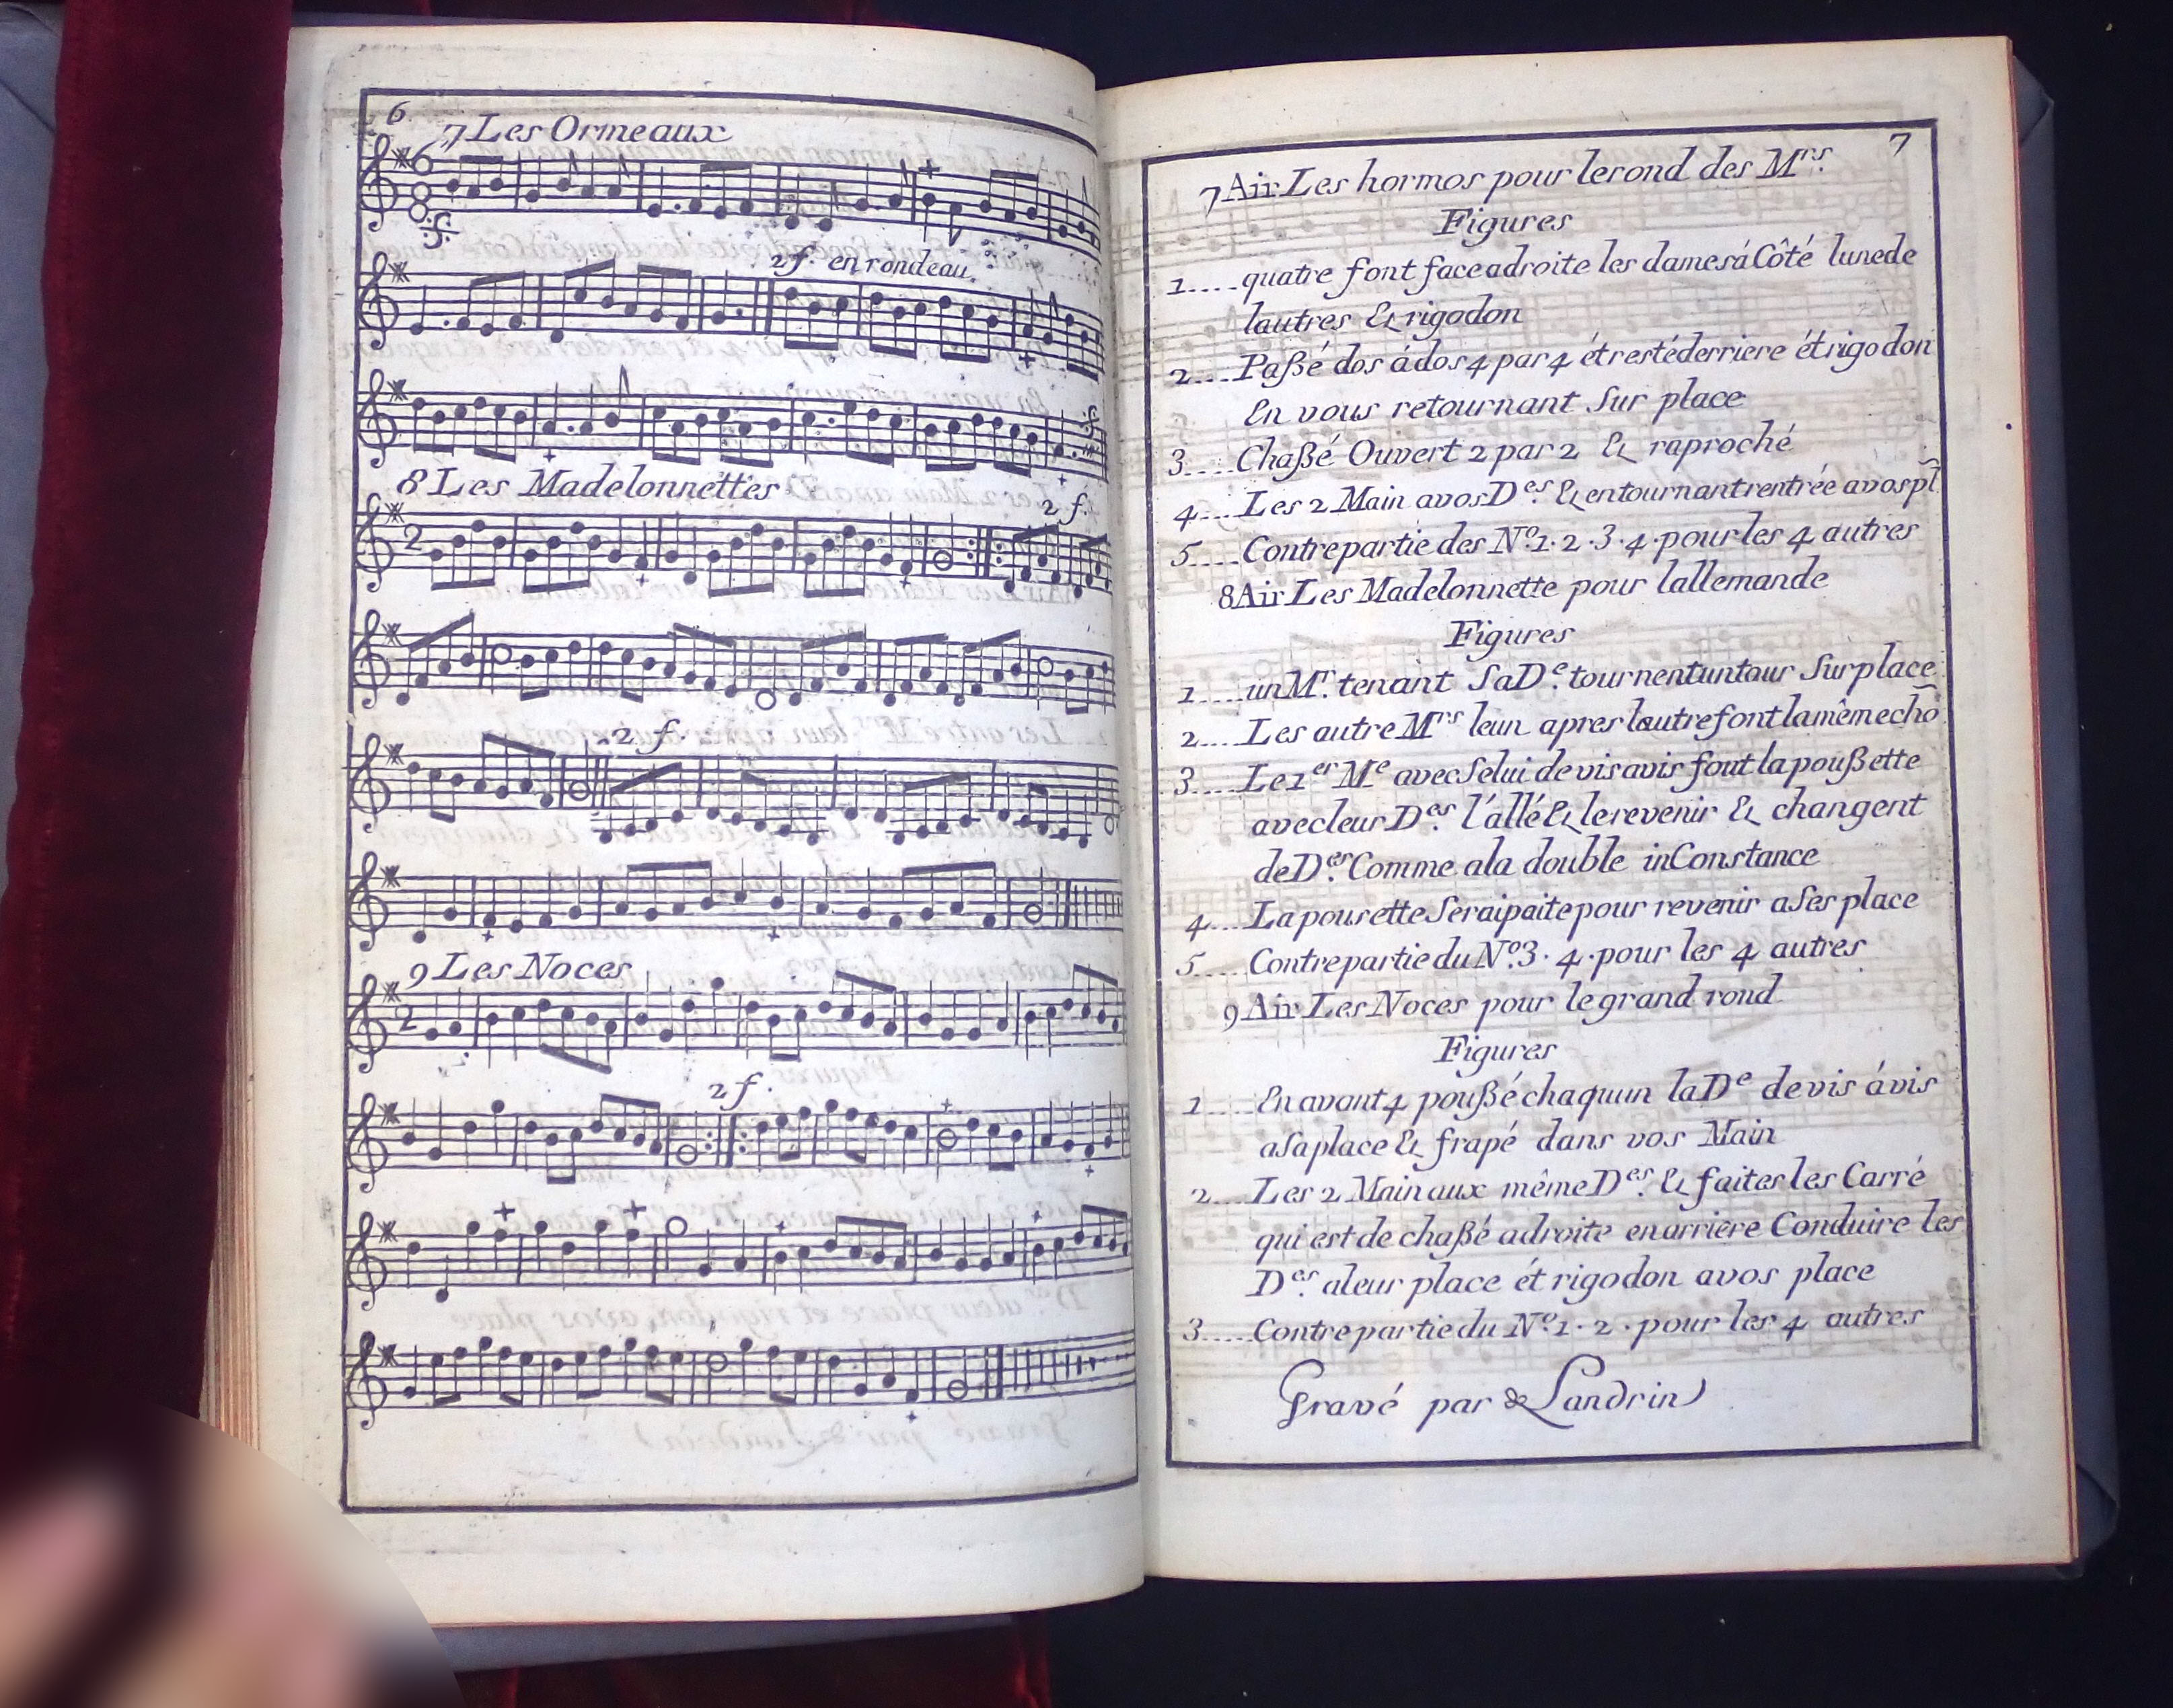 6
7 Les Ormeaux
6
8
2 f. en rondeau
8 Les Madelonnettes
2 f.
2
2 f.
9 Les Noces
2
2 f.
7
7 Air Les hormos pour lerond des Mrs.
Figures
1.... quatre font face adroite les dames á Côté lunede
lautres & rigodon
2.... Paßé dos ádos 4 par 4 ét resté derriere ét rigodon
En vous retournant Sur place
3.... Chaßé Ouvert 2 par 2 & raproché
4.... Les 2 Main avos Des. & entournant rentrée avos pl
5.... Contrepartie des No. 1. 2. 3. 4. pour les 4 autres
8 Air Les Madelonnette pour lallemande
Figures
1.... un Mr. tenant Sa De. tournent un tour Sur place
2.... Les autre Mrs leun apres lautre font la mêm echõ
3.... Le 1er Me avec Selui de vis avis font la poußette
avec leur Des. l'állé & le revenir & changent
de Des. Comme ala double inConstance
4.... La pousette Seraipaite pour revenir a Ses place
5.... Contrepartie du No. 3. 4. pour les 4 autres
9 Air Les Noces pour le grand rond
Figures
1.... En avant 4 poußé chaquun la De de vis ávis
a Sa place & frapé dans vos Main
2.... Les 2 Main aux même Des. & faites les Carré
qui est de chaßé adroite en arriere Conduire les
Des. aleur place ét rigodon avos place
3.... Contrepartie du No. 1. 2. pour les 4 autres
Gravé par & Landrin